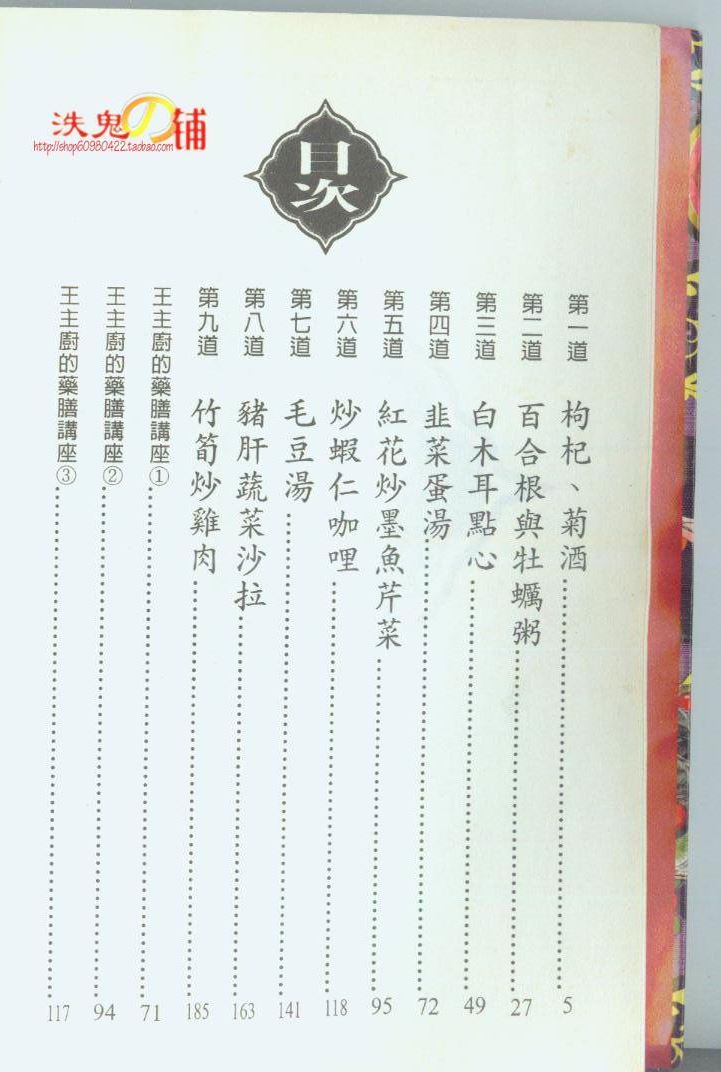 洗鬼の铺
http://shop60980422.taobao.com
目次
第一道 枸杞、菊酒……5
第二道 百合根與牡蠣粥……27
第三道 白木耳點心……49
第四道 韭菜蛋湯……72
第五道 紅花炒墨魚芹菜……95
第六道 炒蝦仁咖哩……118
第七道 毛豆湯……141
第八道 豬肝蔬菜沙拉……163
第九道 竹筍炒雞肉……185
王主廚的藥膳講座①……71
王主廚的藥膳講座②……94
王主廚的藥膳講座③……117